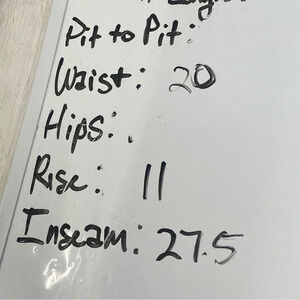 Pit to Pit:
Waist: 20
Hips:
Rise: 11
Inseam: 27.5